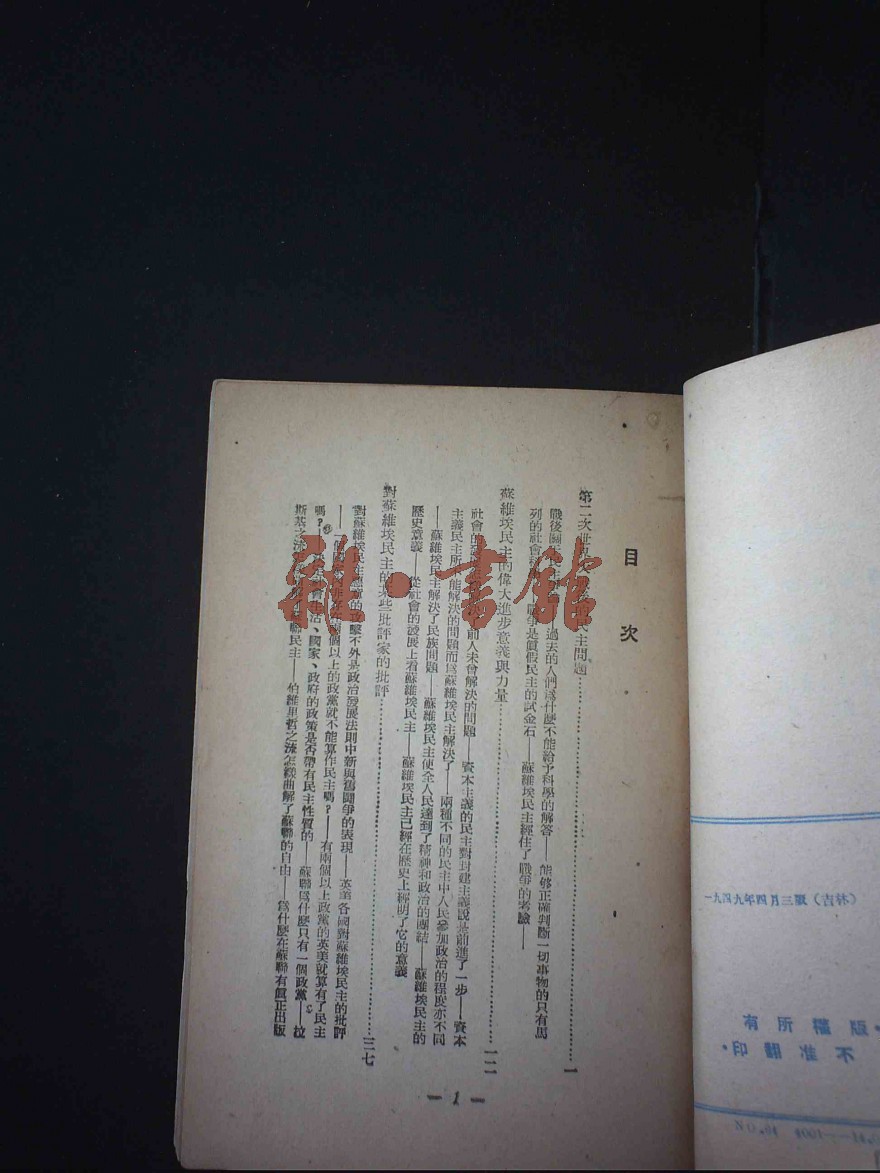 目次
第二次世界 的民主問題 一
戰後關 過去的人們爲什麼不能給予科學的解答——能够正確判斷一切事物的只有馬
列的社會 戰爭是眞假民主的試金石——蘇維埃民主經住了戰爭的考驗——
蘇維埃民主的偉大進步意義與力量
社會的 前人未會解決的問題——資本主義的民主對封建主義說是前進了一步——資本
主義民主所不能解決的問題而爲蘇維埃民主解決了——兩種不同的民主中人民參加政治的程度亦不同
——蘇維埃民主解決了民族問題——蘇維埃民主使全人民達到了精神和政治的團結——蘇維埃民主的
歷史意義——從社會的發展上看蘇維埃民主——蘇維埃民主已經在歷史上證明了它的意義
對蘇維埃民主的某些批評家的批評 三七
對蘇維埃民主 的攻擊不外是政治發展法則中新與舊鬪爭的表現——英美各國對蘇維埃民主的批評
—— 個以上的政黨就不能算作民主嗎?——有兩個以上政黨的英美就算有了民主
嗎?—— 生活、國家、政府的政策是否帶有民主性質的——蘇聯爲什麼只有一個政黨——拉
斯基之流 聯民主——伯維里哲之流怎樣曲解了蘇聯的自由——爲什麼在蘇聯有眞正出版
— 1 —
雜·書館
一九四九年四月三版（吉林）
版權所有
不准翻印